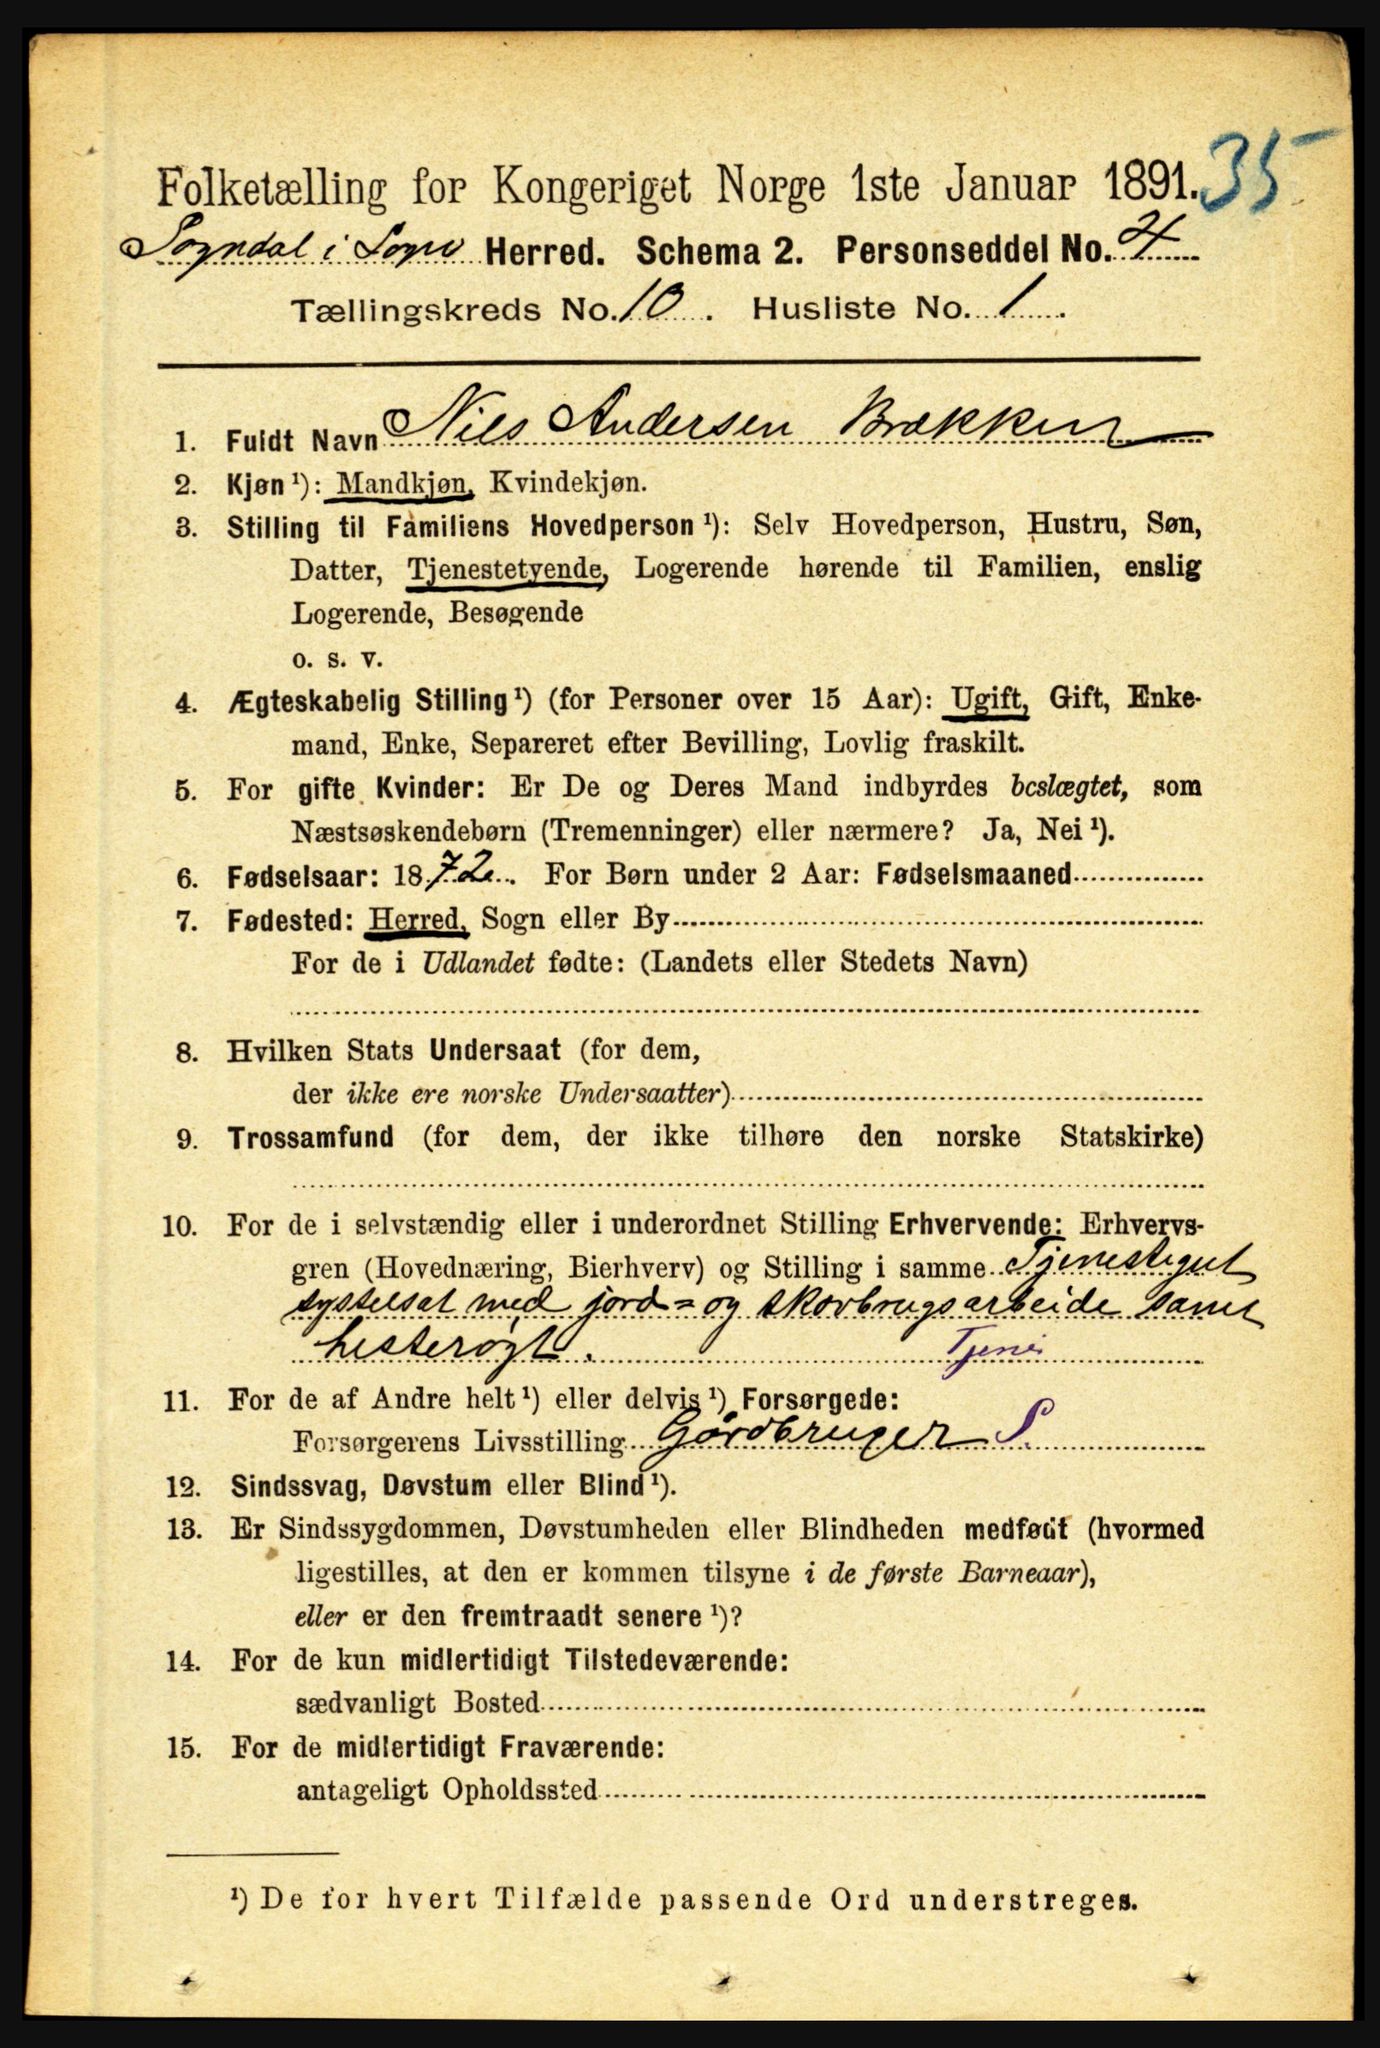 35
Folketælling for Kongeriget Norge 1ste Januar 1891.
Sogndal i Sogn Herred. Schema 2. Personseddel No. 4
Tællingskreds No. 10. Husliste No. 1.
1. Fuldt Navn Nils Andersen Brækken
2. Kjøn ¹): Mandkjøn, Kvindekjøn.
3. Stilling til Familiens Hovedperson ¹): Selv Hovedperson, Hustru, Søn,
Datter, Tjenestetyende, Logerende hørende til Familien, enslig
Logerende, Besøgende
o. s. v.
4. Ægteskabelig Stilling ¹) (for Personer over 15 Aar): Ugift, Gift, Enke-
mand, Enke, Separeret efter Bevilling, Lovlig fraskilt.
5. For gifte Kvinder: Er De og Deres Mand indbyrdes beslægtet, som
Næstsøskendebørn (Tremenninger) eller nærmere? Ja, Nei ¹).
6. Fødselsaar: 1872. For Børn under 2 Aar: Fødselsmaaned
7. Fødested: Herred, Sogn eller By
For de i Udlandet fødte: (Landets eller Stedets Navn)
8. Hvilken Stats Undersaat (for dem,
der ikke ere norske Undersaatter)
9. Trossamfund (for dem, der ikke tilhøre den norske Statskirke)
10. For de i selvstændig eller i underordnet Stilling Erhvervende: Erhvervs-
gren (Hovednæring, Bierhverv) og Stilling i samme Tjenestegut
sysselsat med jord= og skovbrugsarbeide samt
hesterøgt. Tjene
11. For de af Andre helt ¹) eller delvis ¹) Forsørgede:
Forsørgerens Livsstilling Gårdbruger S.
12. Sindssvag, Døvstum eller Blind ¹).
13. Er Sindssygdommen, Døvstumheden eller Blindheden medfødt (hvormed
ligestilles, at den er kommen tilsyne i de første Barneaar),
eller er den fremtraadt senere ¹)?
14. For de kun midlertidigt Tilstedeværende:
sædvanligt Bosted
15. For de midlertidigt Fraværende:
antageligt Opholdssted
¹) De for hvert Tilfælde passende Ord understreges.